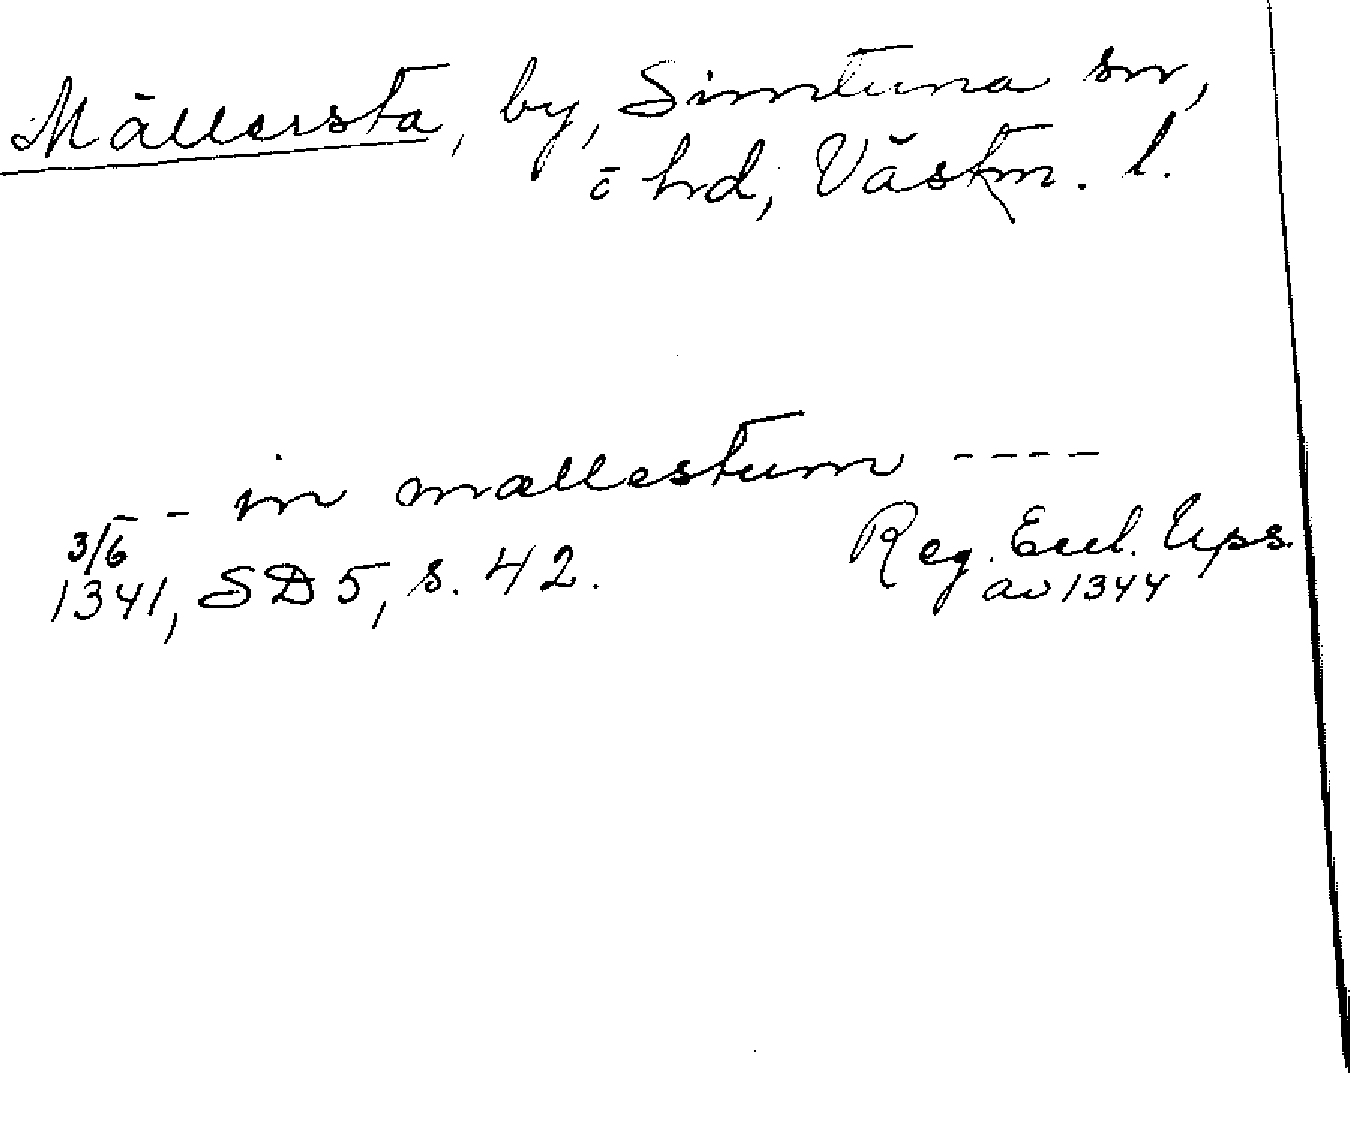 Mällersta, by, Simtuna sn,
o hd, Västm. l.
- in mællestum ----
3/6
1341, SD 5, s. 42.
Reg. Eccl. Ups.
av 1344